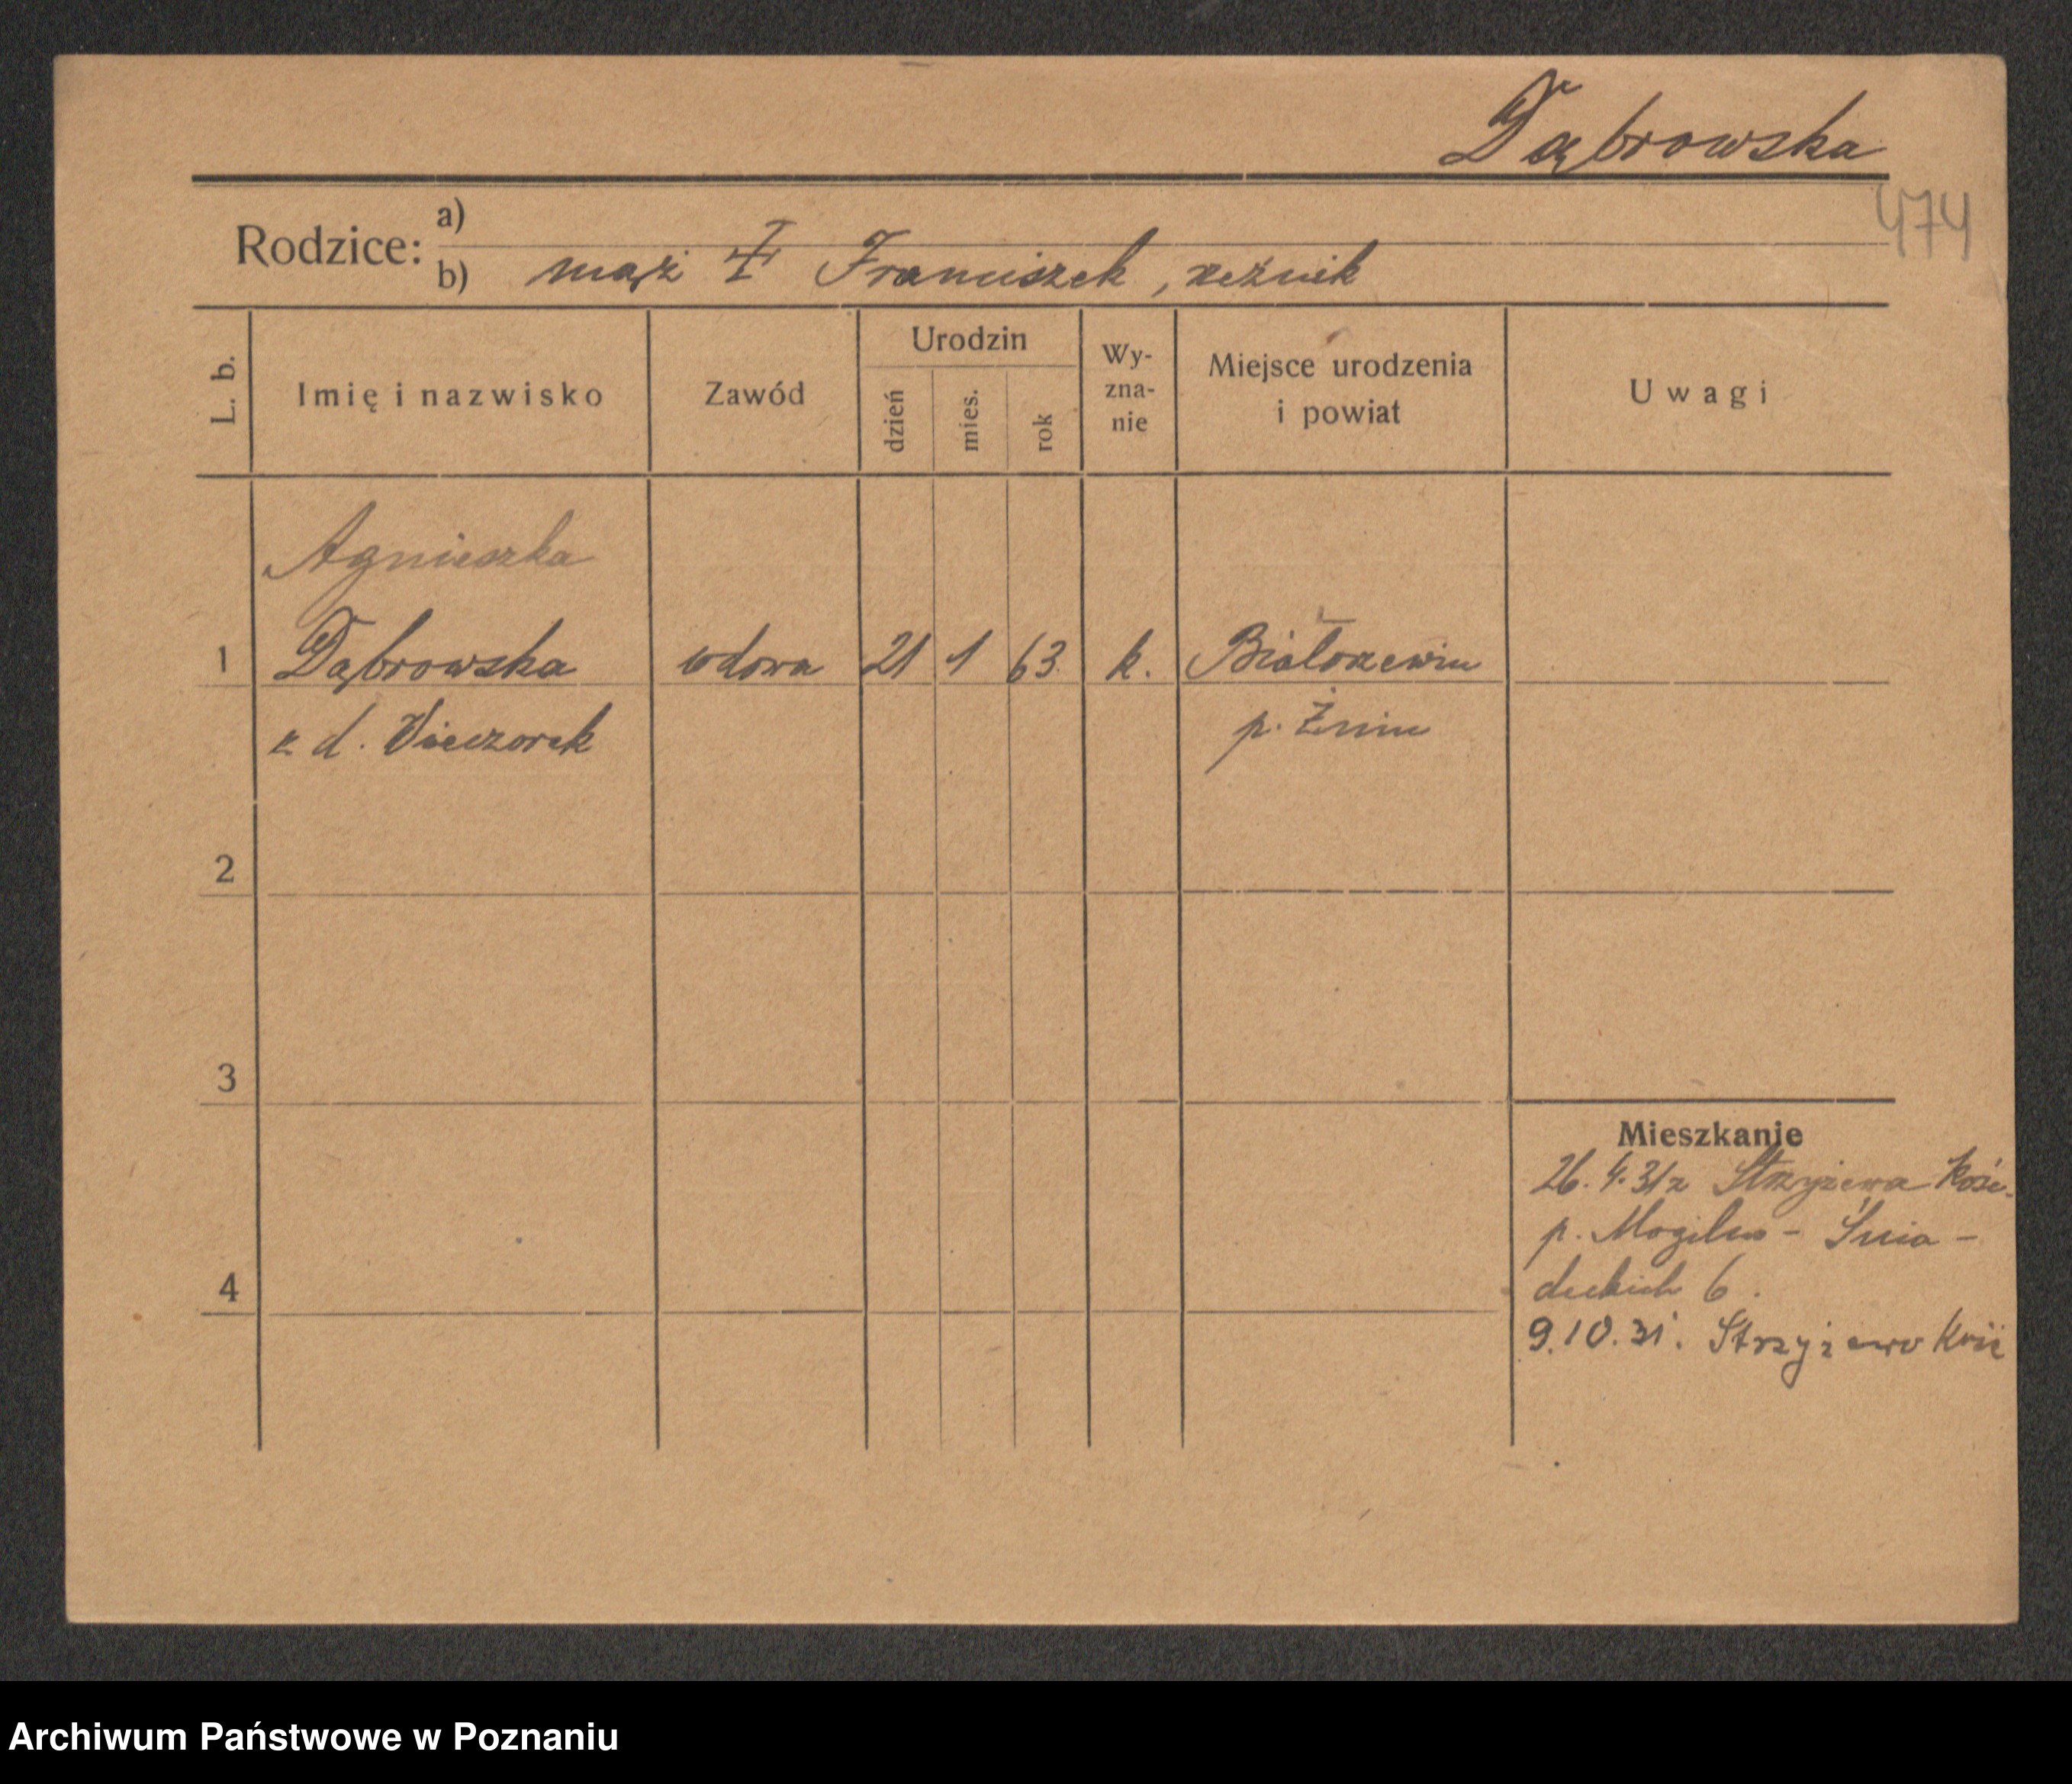 Dąbrowska
474
Rodzice: a)
b) mąż Franciszek, rzeźnik
L. b. Imię i nazwisko Zawód Urodzin dzień mies. rok Wy-zna-nie Miejsce urodzenia i powiat Uwagi
Agnieszka
1 Dąbrowska wdowa 21 1 63. k. Białożewin
z d. Wieczorek p. Żnin
2
3
Mieszkanie
26.4.31 z Strzyżewa Kość.
p. Mogilno - Śnia-
4 deckich 6.
9.10.31. Strzyżewo Kość
Archiwum Państwowe w Poznaniu